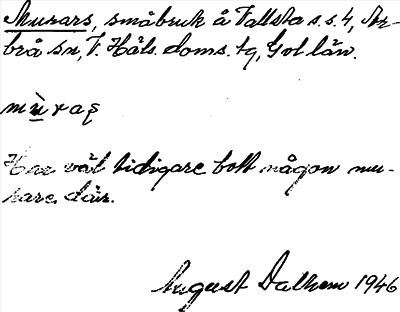 Murars, småbruk å Vallsta s.s. 4, Ar-
brå sn, V. Häls. doms. tg, Gvl län.
mu̠̇ras
Har väl tidigare bott någon mu-
rare där.
August Dalhem 1946